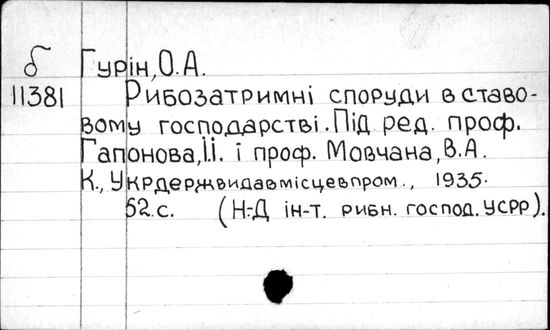 б Гурін, О.А.
11381 Рибозатримні споруди в ставо-
вому господарстві. Під ред. проф.
Гапонова, І.І. і проф. Мовчана, В.А.
К., Укрдержвидавмісцевпром., 1935.
52 с. (Н.-Д ін-т. рибн. господ. УСРР).